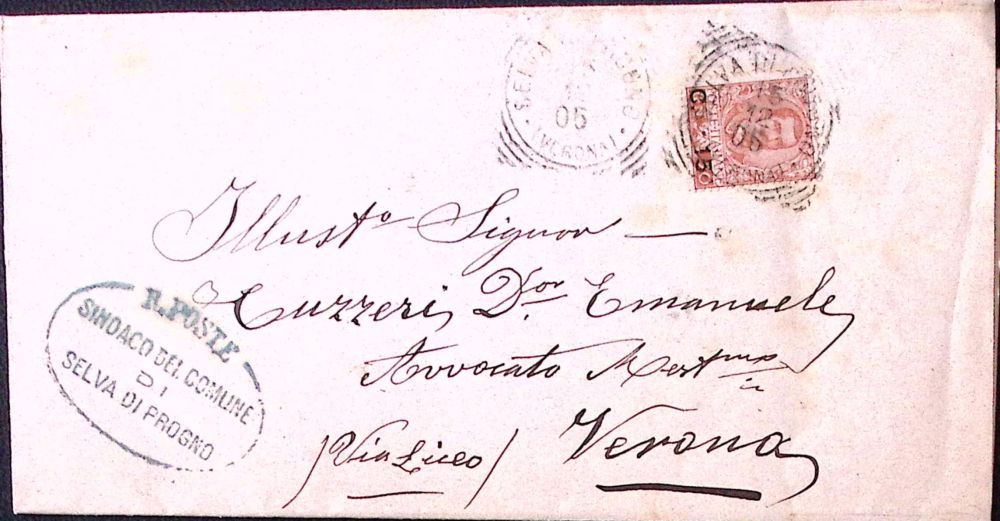 SELVA DI PROGNO
05
(VERONA)
SELVA DI PROGNO
15
12
05
(VERONA)
C. 15
Illust.o Signor —
Cuzzeri D.or Emanuele
Avvocato
(Via Liceo) Verona
R. POSTE
SINDACO DEL COMUNE
DI
SELVA DI PROGNO